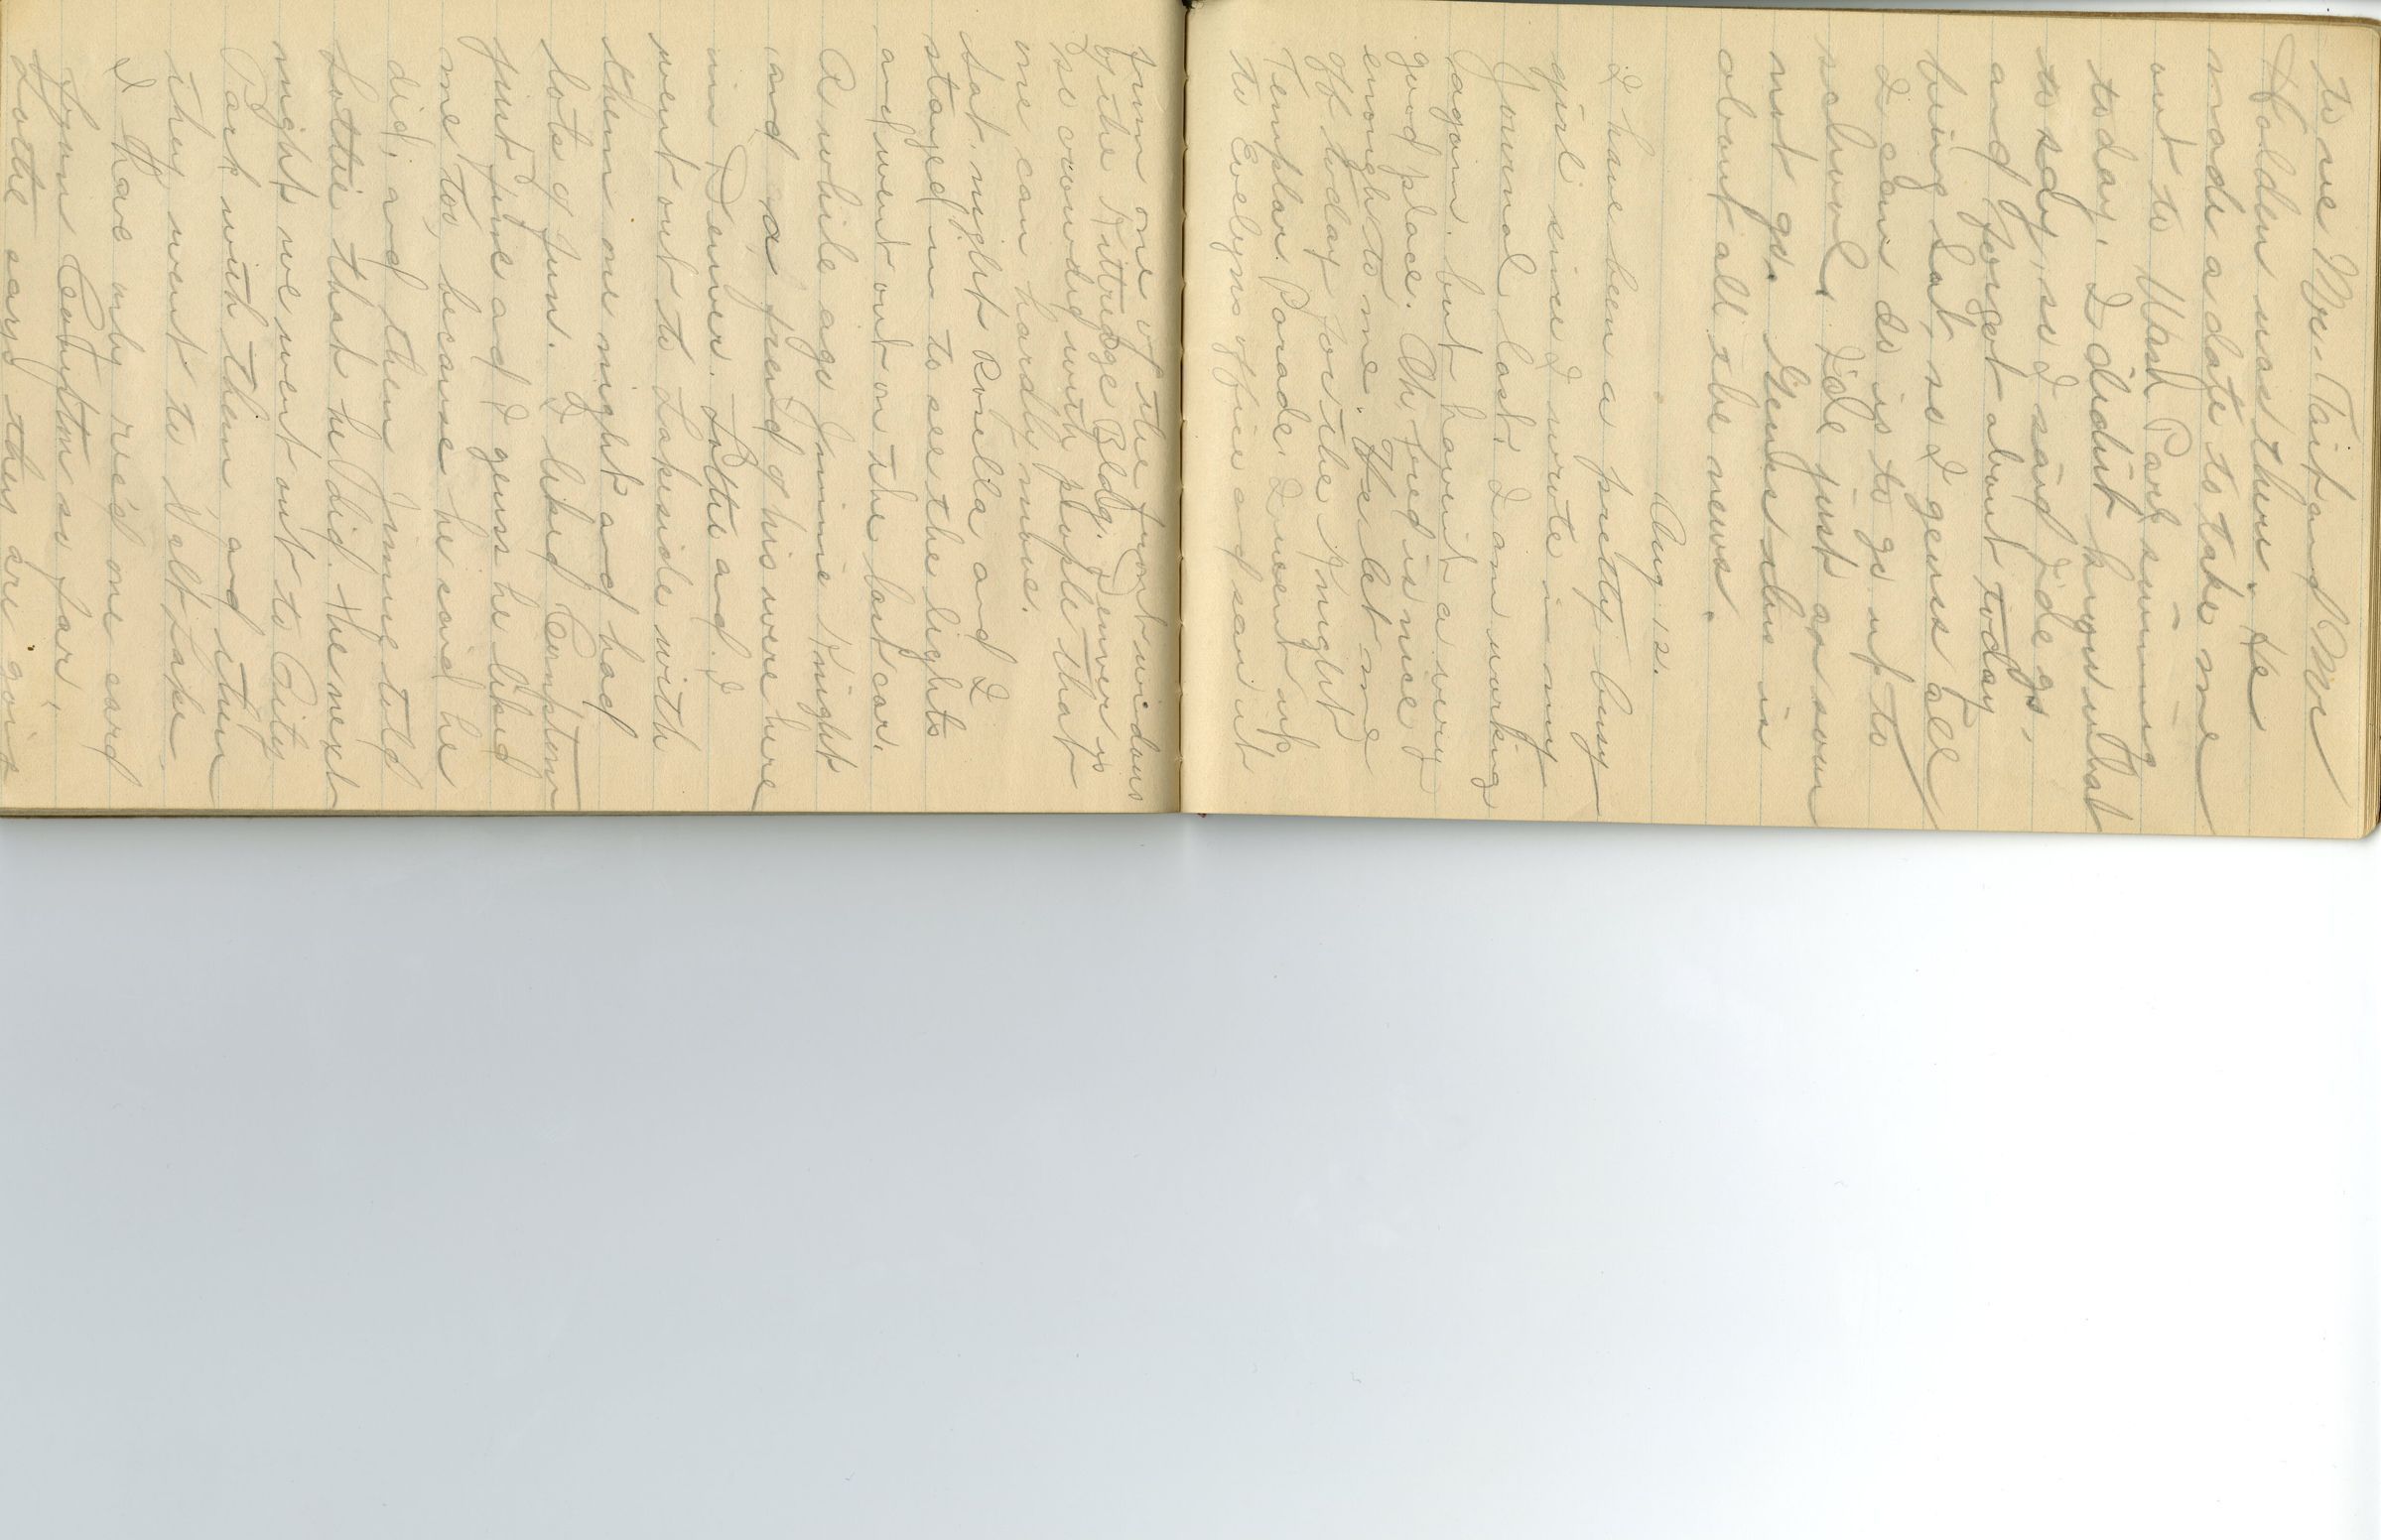 to see Mr. Tait and Mr
Holden was there. He
made a date to take me
out to Wash Park swiming
today. I didn't know what
to say, so I said I'de go,
and forgot about today
being Sat, so I guess all
I can do is to go up to
school. I'de just as soon
not go. Guess this is
about all the news.
Aug 12.
I have been a pretty busy
girl since I wrote in my
Journal last. I am working
again. but havin't a very
good place. Oh, Fred is nice
enough to me. He let me
off today for the Knight
Templar Parade. I went up
to Evelyns office and saw it
from one of the front windows
of the Kittredge Bldg. Denver is
so crowded with people that
one can hardly move.
Sat. night Rosella and I
stayed in to see the lights
and went out on the last car.
A while ago Jimmie Knight
and a friend of his were here
in Denver. Lottie and I
went out to Lakeside with
them one night and had
lots of fun. I liked Compton
just fine and I guess he liked
me too, because he said he
did, and then Jimmie told
Lottie that he did. The next
night we went out to City
Park with them and then
they went to Salt Lake.
I have only rec'd one card
from Compton so far,
Lottie says they are going